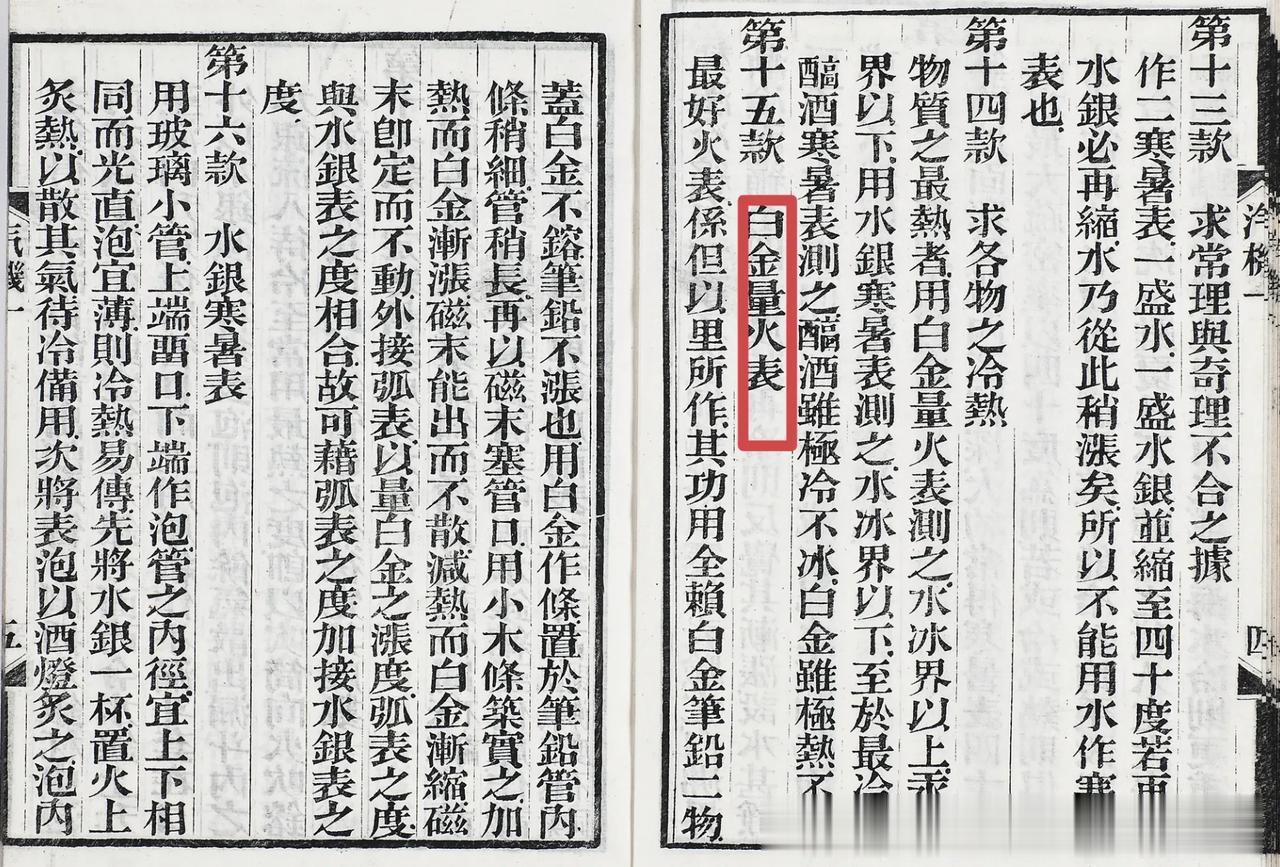 汽機一
四
第十三款　求常理與奇理不合之據
作二寒暑表一盛水一盛水銀並縮至四十度若再
水銀必再縮水乃從此稍漲矣所以不能用水作寒
表也
第十四款　求各物之冷熱
物質之最熱者用白金量火表測之水冰界以上
界以下用水銀寒暑表測之水冰界以下至於最冷
醕酒寒暑表測之醕酒雖極冷不冰白金雖極熱不
第十五款　白金量火表
最好火表係但以里所作其功用全賴白金筆鉛二物
蓋白金不鎔筆鉛不漲也用白金作條置於筆鉛管內
條稍細管稍長再以磁末塞管口用小木條築實之加
熱而白金漸漲磁末能出而不散減熱而白金漸縮磁
末卽定而不動外接弧表以量白金之漲度弧表之度
與水銀表之度相合故可藉弧表之度加接水銀表之
度
第十六款　水銀寒暑表
用玻璃小管上端畱口下端作泡管之內徑宜上下相
同而光直泡宜薄則冷熱易傳先將水銀一杯置火上
炙熱以散其氣待冷備用次將表泡以酒燈炙之泡內
汽機一
五